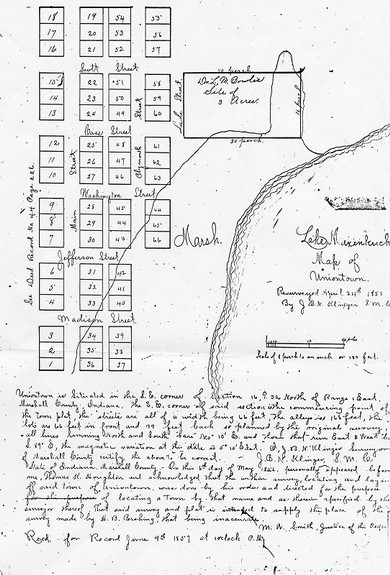 18 19 54 55
17 20 53 56
16 21 52 57
Scott Street
15 22 51 58
14 23 50 59
13 24 49 60
Lake Street
Street
10 perch.
Dr. L. M. Bowles
Side of
3 Acres.
30 perch.
Bass Street
12 25 48 61
11 26 47 62
10 27 46 63
Street
Plymouth
Washington Street
9 28 45 64
8 29 44 65
7 30 43 66
Main
See Deed Record No 44 Page 226.
Marsh.
Jefferson Street
6 31 42
5 32 41
4 33 40
Madison Street
3 34 39
2 35 38
1 36 37
Lake Maxenkuck
Map of
Uniontown.
Resurveyed April 24th 1851
By J. B. N. Klinger S. M. C.
Scale of 8 perch to an inch or 132 feet.
Uniontown is Situated in the S.E. corner of Section 16, T. 32 North of Range 1 East,
Marshall County, Indiana, the S.E. corner of said section the commencing point of
the town plat, the streets are all of a width being 66 feet, The alleys is 16½ feet, the
lots are 66 feet in front and 99 feet back as planned by the original survey,
all lines running North and South bear and those that run East and West
the magnetic variation at this date is I, J. B. N. Klinger surveyor
of Marshall County certify the above to be correct. J. B. N. Klinger, S. M. C.
State of Indiana Marshall County. On the 5th day of May personally appeared before
me, Thomas K. Houghton and acknowledged that the within survey, locating and lay
off said town of Uniontown, was done by his order and desired for the purpose
of locating a Town by that name and as therein specified by the
surveyor thereof That said survey and plat is to supply the place of the
survey made by H. B. Pershing that being inaccurate.
M. W. Smith, Justice of the Peace
Recd. for Record June 9th 1857 at 1 oclock P.M.